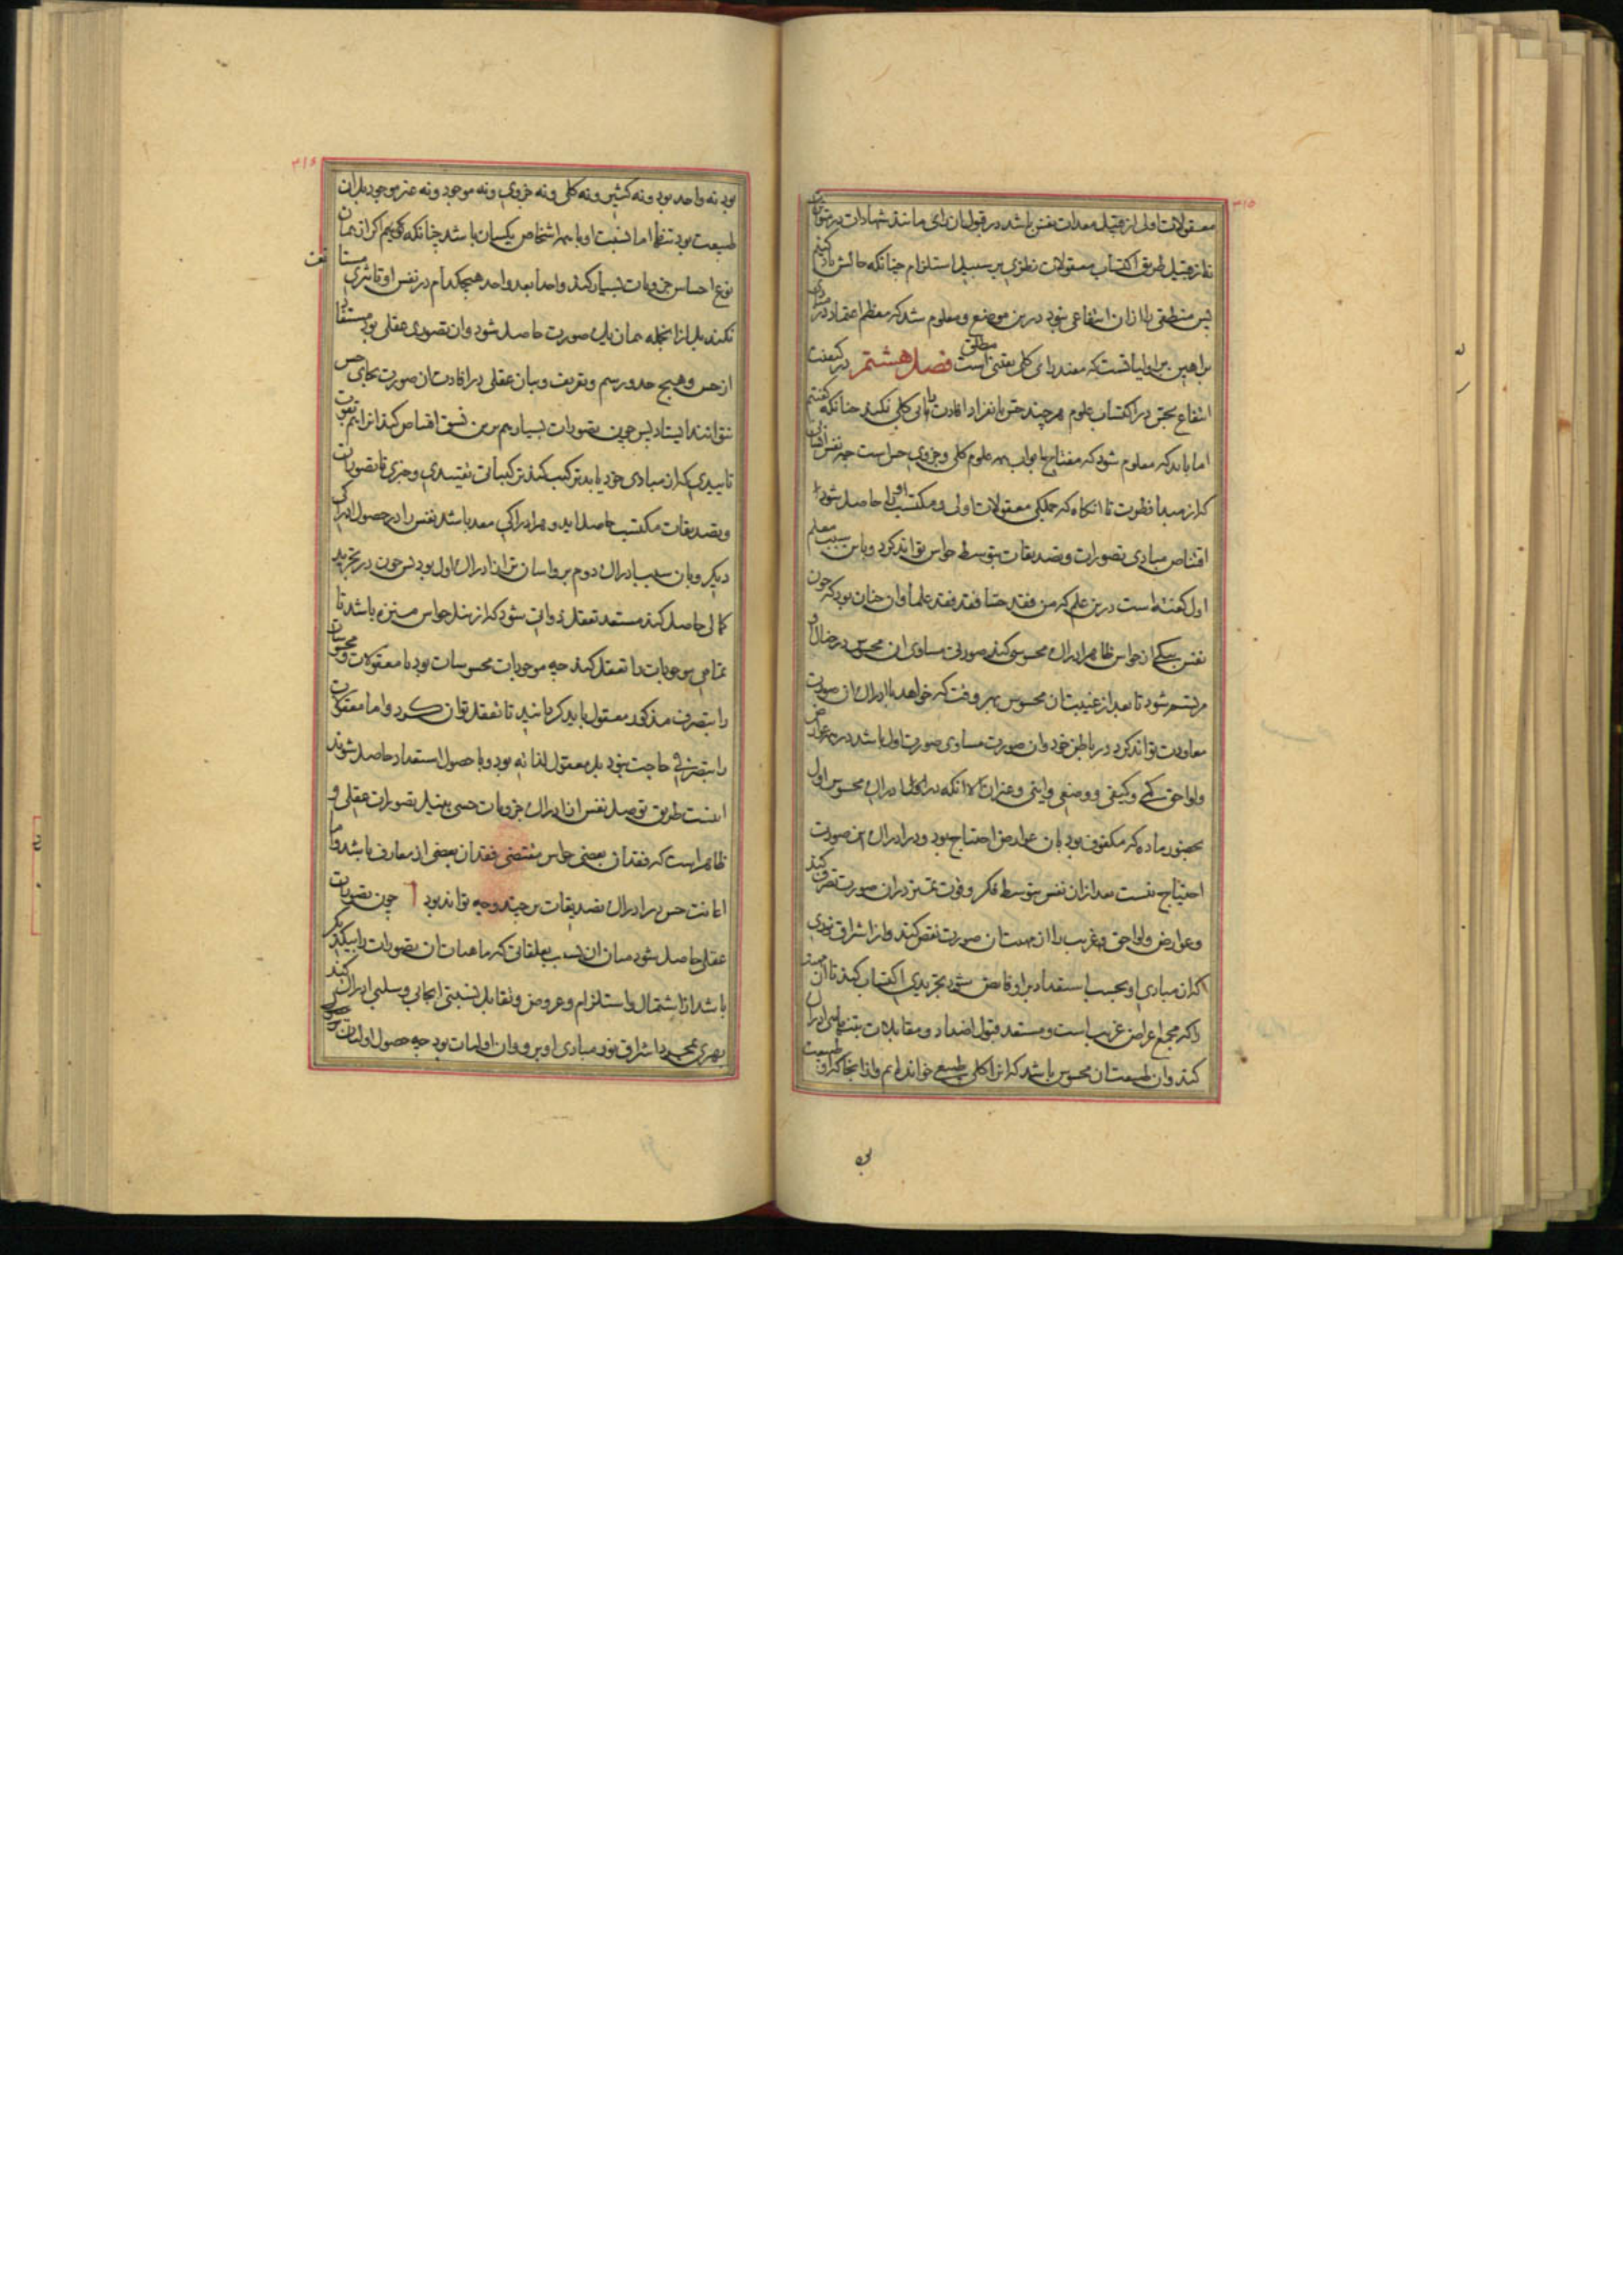 ٣١٥
معقولات اول از قبیل معدات نفس باشد در قبول آن رای مانند شهادات در متواتران
نه از قبیل طریق اکتساب معقولات نظری بر سبیل استلزام چنانکه حالش یاد کنیم
پس منطقی را از آن انتفاعی نبود درین موضع و معلوم شد که معظم اعتماد در مبادی
براهین بر اولیاتست که مفید رای کلی یقینی مطلق است فصل هشتم در کیفیت
انتفاع بحس در اکتساب علوم هر چند حس بانفراد افادت رایی کلی نکند چنانکه گفتیم
اما باید که معلوم شود که مفتاح ابواب همه علوم کلی و جزوی حس است چه نفس انسانی
که از مبدأ فطرت تا آنگاه که جملگی معقولات اولی و مکتسب او را حاصل شود
اقتناص مبادی تصورات و تصدیقات بتوسط حواس تواند کرد و باین سبب معلم
اول گفته است درین علم که من فقد حسا فقد فقد علما و آن چنان بود که چون
نفس بیکی از حواس ظاهر ادراک محسوسی کند صورتی مساوی آن محسوس در خیال او
مرتسم شود تا بعد از غیبت آن محسوس بهر وقت که خواهد با ادراک آن صورت
معاودت تواند کرد در باطن خود و آن صورت مساوی صورت اول باشد در همه عوارض
و لواحق کمی و کیفی و وضعی و اینی و غیر آن الا آنکه در ادراک محسوس اول
بحضور ماده که مکفوف بود بآن عوارض احتیاج بود و در ادراک این صورت
احتیاج نیست بعد از آن نفس بتوسط فکر و قوت تمیز در آن صورت تصرف کند
و عوارض و لواحق غریب را از مهیت آن صورت نقض کند و از اشراق نوری
که از مبادی او بحسب استعداد بر او فایض شود تجریدی اکتساب کند تا آن مهیت
را که مجمع اعراض غریب است و مستعد قبول اضداد و مقابلات بتنهایی ادراک
کند و آن طبیعت آن محسوس باشد که آنرا کلی طبیعی خوانده‌ایم و از آنجا که او طبیعت
٣١٤
بود نه واحد بود و نه کثیر و نه کلی و نه جزوی و نه موجود و نه غیر موجود بل آن
طبیعت بود تنها اما نسبت او با همه اشخاص یکسان باشد چنانکه گوئیم که از همان
نوع احساس جزویات بسیار کند واحدا بعد واحد هیچکدام در نفس او تاثیری مستأنف
نکند بل از آنجمله همان یک صورت حاصل شود و آن تصوری عقلی بود مستفاد
از حس و هیچ حد و رسم و تعریف و بیان عقلی در افادت آن صورت بجای حس
نتوانند ایستاد پس چون تصورات بسیار هم برین نسق اقتناص کند آنرا هم بقوت
تاییدی که از مبادی خود یابد ترکیب کند ترکیباتی تقییدی و خبری تا تصورات
و تصدیقات مکتسب حاصل آید و هر ادراکی معد باشد نفس را در حصول ادراکی
دیگر و بآن سبب ادراک دوم برو آسان تر از ادراک اول بود پس چون در تجرید
کمالی حاصل کند مستعد تعقل ذواتی شود که از بند حواس منزه باشد تا
تمامی موجودات را تعقل کند چه موجودات محسوسات بود یا معقولات و محسوسات
را بتصرف مذکور معقول باید گردانید تا تعقل توان کرد و اما معقولات
را بتصرفی حاجت نبود بل معقول لذاته بود و با حصول استعداد حاصل شوند
اینست طریق توصل نفس از ادراک جزویات حسی بنیل تصورات عقلی و
ظاهر است که فقدان بعضی حواس مقتضی فقدان بعضی از معارف باشد و اما
اعانت حس در ادراک تصدیقات بر چند وجه تواند بود ا چون تصورات
عقلی حاصل شود میان آن نسب بعلقاتی که ماهیات آن تصورات را بیکدیگر
باشد از اشتمال و استلزام و عروض و تقابل نسبتی ایجابی و سلبی ادراک کند
بمجرد اشراق نور مبادی او برو و آن اولیات بود چه حصول اولیات